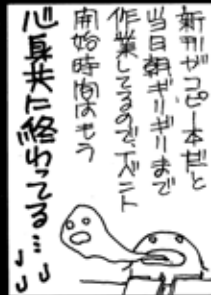 新刊がコピー本だと
当日朝ギリギリまで
作業してるので、イベント
開始時間はもう
心身共に終わってる…